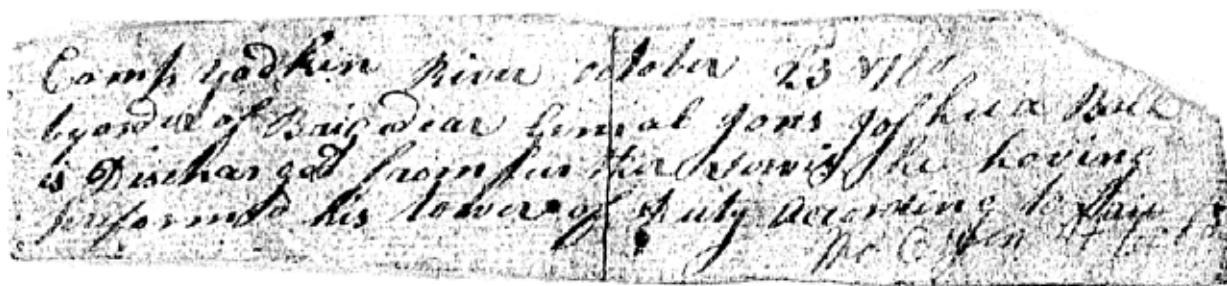 Camp Yadkin River october 23 1780
by order of Brigedear General Jons Joshua Bell
is Dischargd from further servis he having
preformd his tower of Duty according to